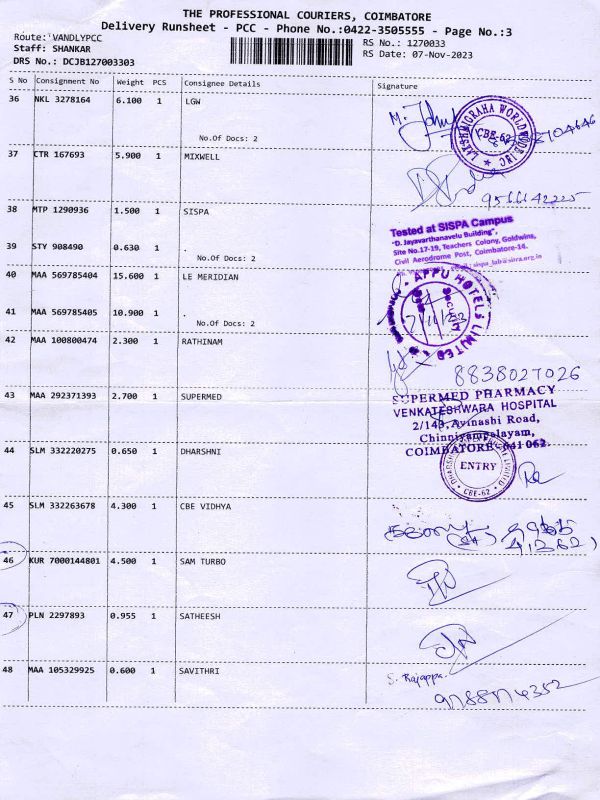 THE PROFESSIONAL COURIERS, COIMBATORE
Delivery Runsheet - PCC - Phone No.:0422-3505555 - Page No.:3
Route: VANDLYPCC
RS No.: 1270033
Staff: SHANKAR
RS Date: 07-Nov-2023
DRS No.: DCJB127003303
S No Consignment No Weight PCS Consignee Details Signature
36 NKL 3278164 6.100 1 LGW
M. John
LAKSHMIGRAHA WORLDWIDE INC
CBE-62
No.Of Docs: 2
37 CTR 167693 5.900 1 MIXWELL
9566142225
38 MTP 1290936 1.500 1 SISPA
Tested at SISPA Campus
"D. Jayavarthanavelu Building",
Site No.17-19, Teachers Colony, Goldwins,
Civil Aerodrome Post, Coimbatore-14.
39 STY 908490 0.630 1
No.Of Docs: 2
40 MAA 569785404 15.600 1 LE MERIDIAN
APPU HOTELS LIMITED
41 MAA 569785405 10.900 1 .
No.Of Docs: 2
42 MAA 100800474 2.300 1 RATHINAM
8838027026
43 MAA 292371393 2.700 1 SUPERMED
SUPERMED PHARMACY
VENKATESHWARA HOSPITAL
2/143, Avinashi Road,
Chinniyampalayam,
COIMBATORE - 641 062.
44 SLM 332220275 0.650 1 DHARSHNI
ENTRY
CBE-62
45 SLM 332263678 4.300 1 CBE VIDHYA
46 KUR 7000144801 4.500 1 SAM TURBO
47 PLN 2297893 0.955 1 SATHEESH
48 MAA 105329925 0.600 1 SAVITHRI
S. Rajappa